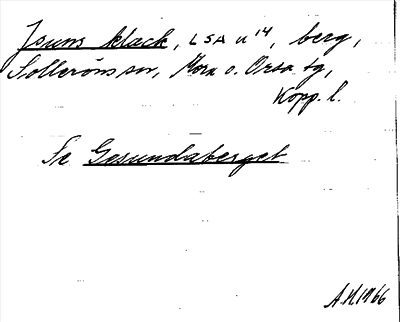 Jsuns klack, LSA u 14, berg,
Solleröns sn, Mora o. Orsa tg,
Kopp. l.
Se Gesundaberget
A.H. 1966